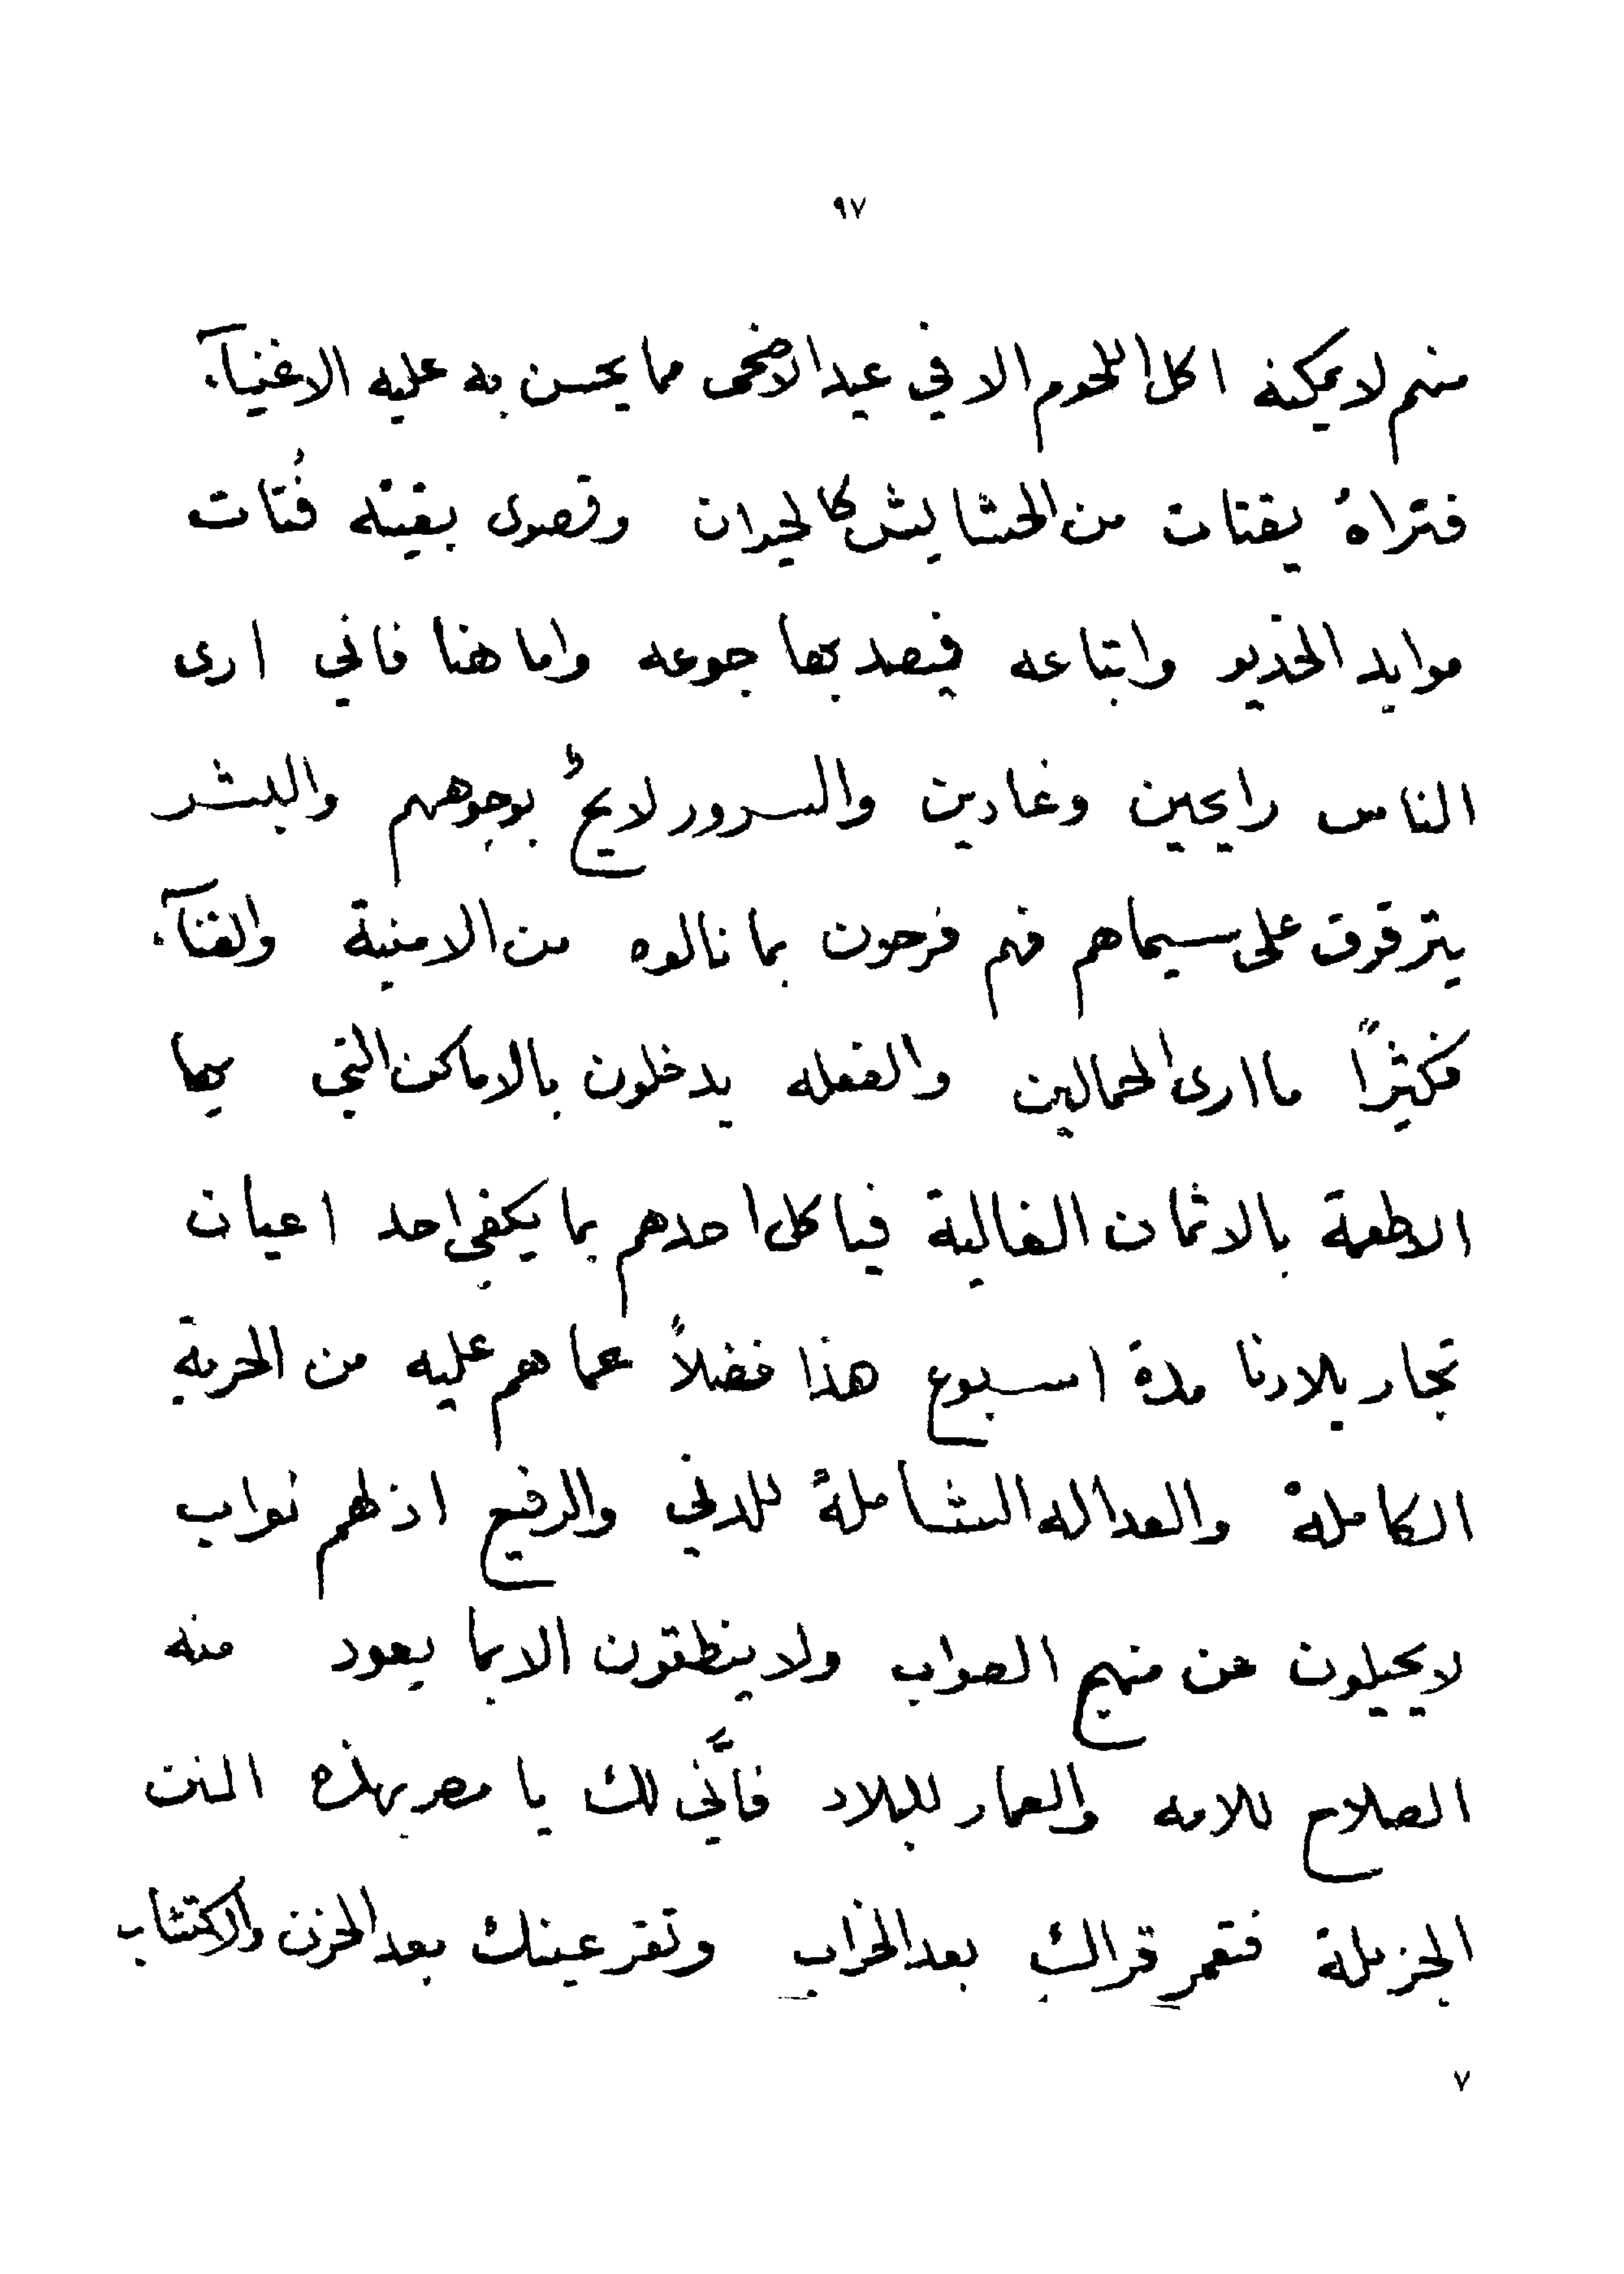 ٩٧
منهم لا يمكنه اكل اللحوم الا في عيد الاضحى مما يحسن به عليه الاغنيآء
فتراهُ يقتات من الحشايش كالحيوان وقصوى بغيته فُتات
موايد الخديو واتباعه فيصد بها جوعه واما هنا فاني ارى
الناس رايحين وغادين والسرور لايحٌ بوجوههم والبشر
يترقرق على سيماهم فهم فرحون بما نالوه من الامنية والغنآء
فكثيرًا ما ارى الحمالين والفعله يدخلون بالاماكن التي بها
الاطعمة بالاثمان الغالية فياكل احدهم بما يكفي احد اعيان
تجار بلادنا مدة اسبوع هذا فضلاً عما هم عليه من الحرية
الكاملة والعداله الشاملة للدني والرفيع اذ لهم نواب
لا يحيلون عن منهج الصواب ولا ينطقون الا بما يعود منه
الصلاح للامه والعمار للبلاد فأَنّى لك يا مصر بهذه المنن
الجزيلة فتعمر قراك بعد الخراب وتقر عينك بعد الحزن والاكتئاب
٧